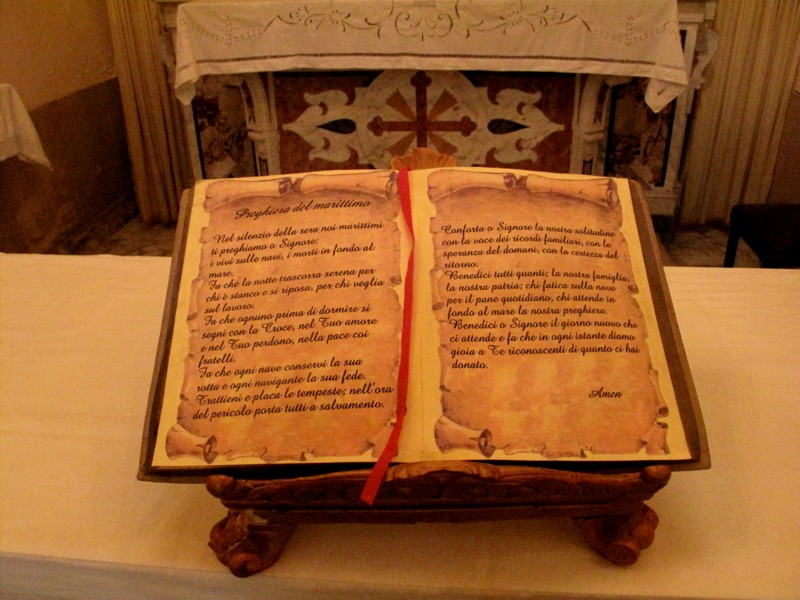 Preghiera del marittimo
Nel silenzio della sera noi marittimi
ti preghiamo o Signore:
i vivi sulle navi, i morti in fondo al
mare.
Fa chè la notte trascorra serena per
chi è stanco e si riposa, per chi veglia
sul lavoro.
Fa che ognuno prima di dormire si
segni con la Croce, nel Tuo amore
e nel Tuo perdono, nella pace coi
fratelli.
Fa che ogni nave conservi la sua
rotta e ogni navigante la sua fede.
Trattieni e placa le tempeste; nell'ora
del pericolo porta tutti a salvamento.
Conforta o Signore la nostra solitudine
con la voce dei ricordi familiari, con la
speranza del domani, con la certezza del
ritorno.
Benedici tutti quanti; la nostra famiglia,
la nostra patria; chi fatica sulla nave
per il pane quotidiano, chi attende in
fondo al mare la nostra preghiera.
Benedici o Signore il giorno nuovo che
ci attende e fa che in ogni istante diamo
gioia a Te riconoscenti di quanto ci hai
donato.
Amen